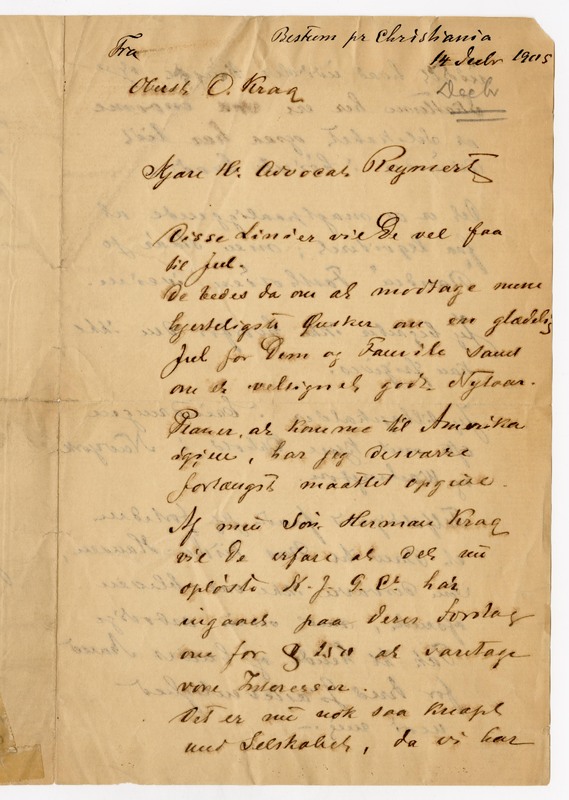 Bestum pr Christiania
14 Decbr 1905
Decbr
Fra
Oberst O. Krag
Kjære Hr. Advocat Reymert
Disse Linier vil De vel faa
til Jul.
De bedes da om at modtage mine
hjerteligste Ønsker om en glædelig
Jul for Dem og Familie samt
om et velsignet godt Nytaar.
Planer, at komme til Amerika
igjen, har jeg desværre
forlængst maattet opgive.
Af min Søn Herman Krag
vil De erfare at det nu
opløste K. J. G. Co har
ingaaet paa deres Forslag
om for $ 250 at varetage
vore Interesser.
Det er nu nok saa knapt
med Selskabet, da vi har